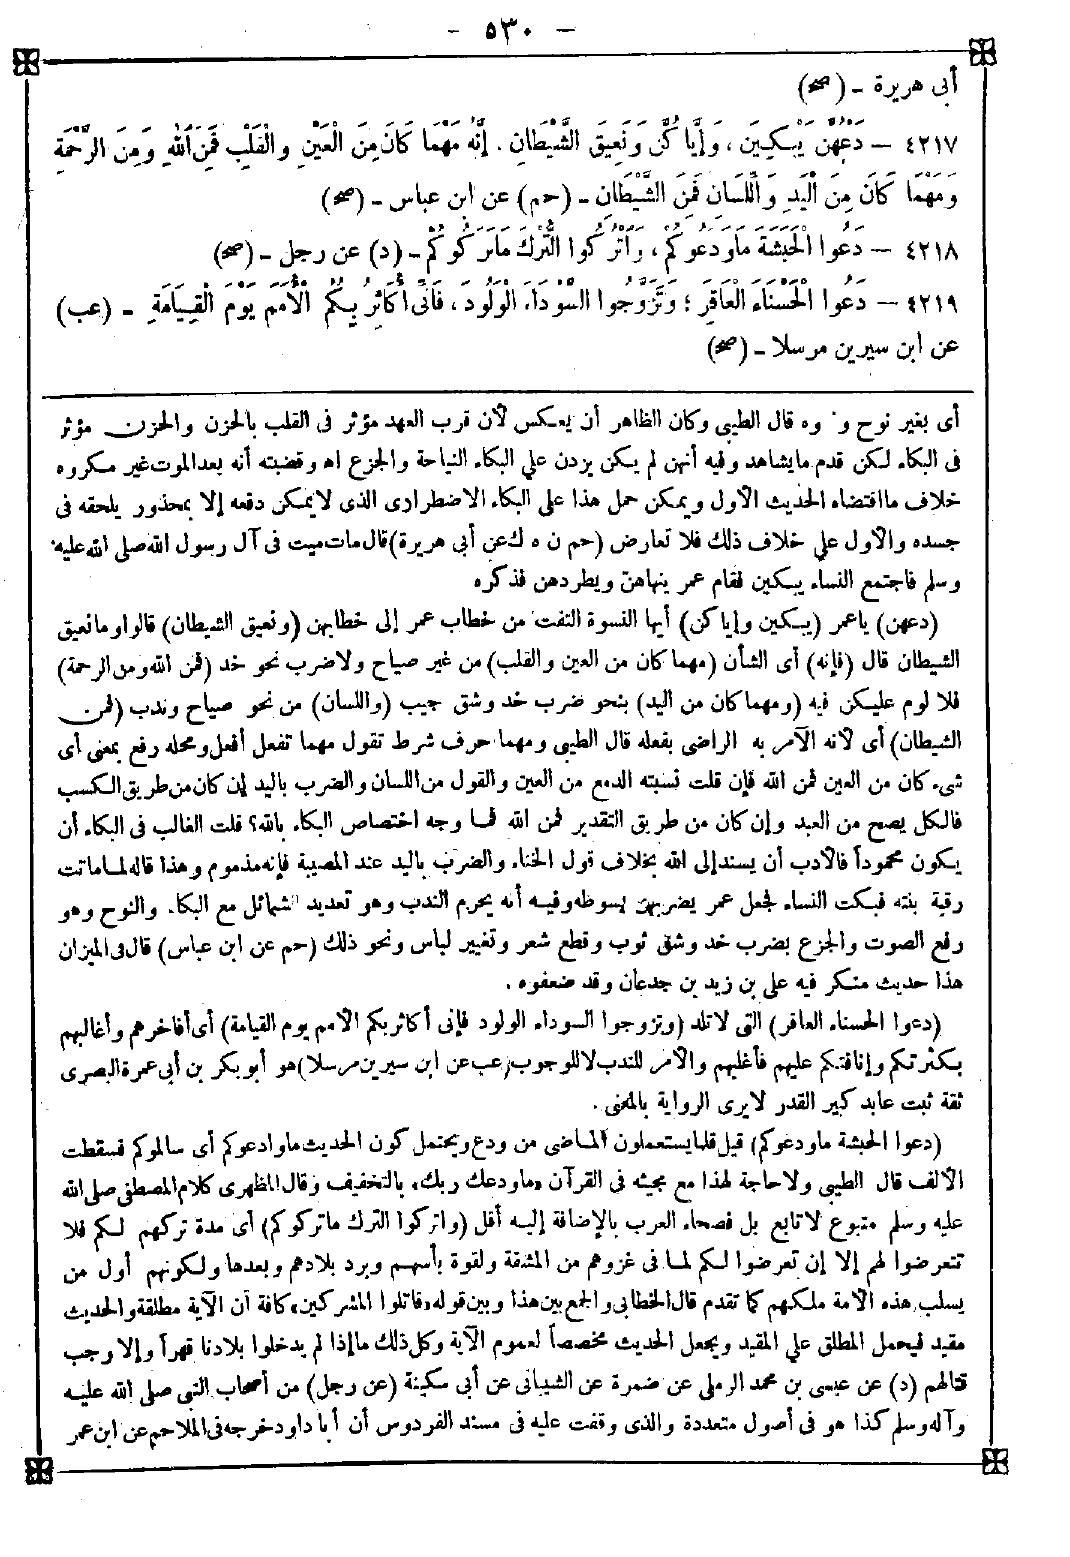 - ٥٣٠ -
أبى هريرة - (صح)
٤٢١٧ - دَعْهُنَّ يَبْكِينَ، وَإِيَّاكُنَّ وَنَعِيقَ الشَّيْطَانِ. إِنَّهُ مَهْمَا كَانَ مِنَ الْعَيْنِ وَالْقَلْبِ فَمِنَ اللهِ وَمِنَ الرَّحْمَةِ
وَمَهْمَا كَانَ مِنَ الْيَدِ وَاللِّسَانِ فَمِنَ الشَّيْطَانِ - (حم) عن ابن عباس - (صح)
٤٢١٨ - دَعُوا الْحَبَشَةَ مَاوَدَعُوكُمْ، وَاتْرُكُوا التُّرْكَ مَاتَرَكُوكُمْ - (د) عن رجل - (صح)
٤٢١٩ - دَعُوا الْحَسْنَاءَ الْعَاقِرَ؛ وَتَزَوَّجُوا السَّوْدَاءَ الْوَلُودَ، فَإِنِّى أُكَاثِرُ بِكُمُ الْأُمَمَ يَوْمَ الْقِيَامَةِ - (عب)
عن ابن سيرين مرسلا - (صح)
أى بغير نوح و وه قال الطيبى وكان الظاهر أن يعكس لأن قرب العهد مؤثر فى القلب بالحزن والحزن مؤثر
فى البكاء لكن قدم مايشاهد وفيه أنهن لم يكن يزدن على البكاء النياحة والجزع اه وقضيته أنه بعد الموت غير مكروه
خلاف مااقتضاه الحديث الأول ويمكن حمل هذا على البكاء الاضطرارى الذى لايمكن دفعه إلا بمحذور يلحقه فى
جسده والأول على خلاف ذلك فلا تعارض (حم ن ه ك عن أبى هريرة) قال مات ميت فى آل رسول الله صلى الله عليه
وسلم فاجتمع النساء يبكين فقام عمر ينهاهن ويطردهن فذكره
(دعهن) ياعمر (يبكين وإياكن) أيها النسوة التفت من خطاب عمر إلى خطابهن (ونعيق الشيطان) قالوا وما نعيق
الشيطان قال (فإنه) أى الشأن (مهما كان من العين والقلب) من غير صياح ولا ضرب نحو خد (فمن الله ومن الرحمة)
فلا لوم عليكن فيه (ومهما كان من اليد) بنحو ضرب خد وشق جيب (واللسان) من نحو صياح وندب (فمن
الشيطان) أى لأنه الآمر به الراضى بفعله قال الطيبى ومهما حرف شرط تقول مهما تفعل أفعل ومحله رفع بمعنى أى
شىء كان من العين فمن الله فإن قلت نسبته الدمع من العين والقول من اللسان والضرب باليد إن كان من طريق الكسب
فالكل يصح من العبد وإن كان من طريق التقدير فمن الله فما وجه اختصاص البكاء بالله؟ قلت الغالب فى البكاء أن
يكون محموداً فالأدب أن يسند إلى الله بخلاف قول الخناء والضرب باليد عند المصيبة فإنه مذموم وهذا قاله لما ماتت
رقية بنته فبكت النساء فجعل عمر يضربهن بسوطه وفيه أنه يحرم الندب وهو تعديد الشمائل مع البكاء والنوح وهو
رفع الصوت والجزع بضرب خد وشق ثوب وقطع شعر وتغيير لباس ونحو ذلك (حم عن ابن عباس) قال فى الميزان
هذا حديث منكر فيه على بن زيد بن جدعان وقد ضعفوه.
(دعوا الحسناء العاقر) التى لا تلد (وتزوجوا السوداء الولود فإنى أكاثر بكم الأمم يوم القيامة) أى أفاخرهم وأغالبهم
بكثرتكم وإنافتكم عليهم فأغلبهم والأمر للندب لا للوجوب (عب عن ابن سيرين مرسلا) هو أبو بكر بن أبى عمرة البصرى
ثقة ثبت عابد كبير القدر لايرى الرواية بالمعنى.
(دعوا الحبشة ماودعوكم) قيل قلما يستعملون الماضى من ودع ويحتمل كون الحديث ماوادعوكم أى سالموكم فسقطت
الألف قال الطيبى ولا حاجة لهذا مع مجيئه فى القرآن «ماودعك ربك» بالتخفيف وقال المظهرى كلام المصطفى صلى الله
عليه وسلم متبوع لاتابع بل فصحاء العرب بالإضافة إليه أقل (واتركوا الترك ماتركوكم) أى مدة تركهم لكم فلا
تتعرضوا لهم إلا إن تعرضوا لكم لما فى غزوهم من المشقة ولقوة بأسهم وبرد بلادهم وبعدها ولكونهم أول من
يسلب هذه الأمة ملكهم كما تقدم قال الخطابى والجمع بين هذا وبين قوله «قاتلوا المشركين» كافة أن الآية مطلقة والحديث
مقيد فيحمل المطلق على المقيد ويجعل الحديث مخصصاً لعموم الآية وكل ذلك ماإذا لم يدخلوا بلادنا قهراً وإلا وجب
قتالهم (د) عن عيسى بن محمد الرملى عن ضمرة عن الشيبانى عن أبى سكينة (عن رجل) من أصحاب النبى صلى الله عليه
وآله وسلم كذا هو فى أصول متعددة والذى وقفت عليه فى مسند الفردوس أن أبا داود خرجه فى الملاحم عن ابن عمر